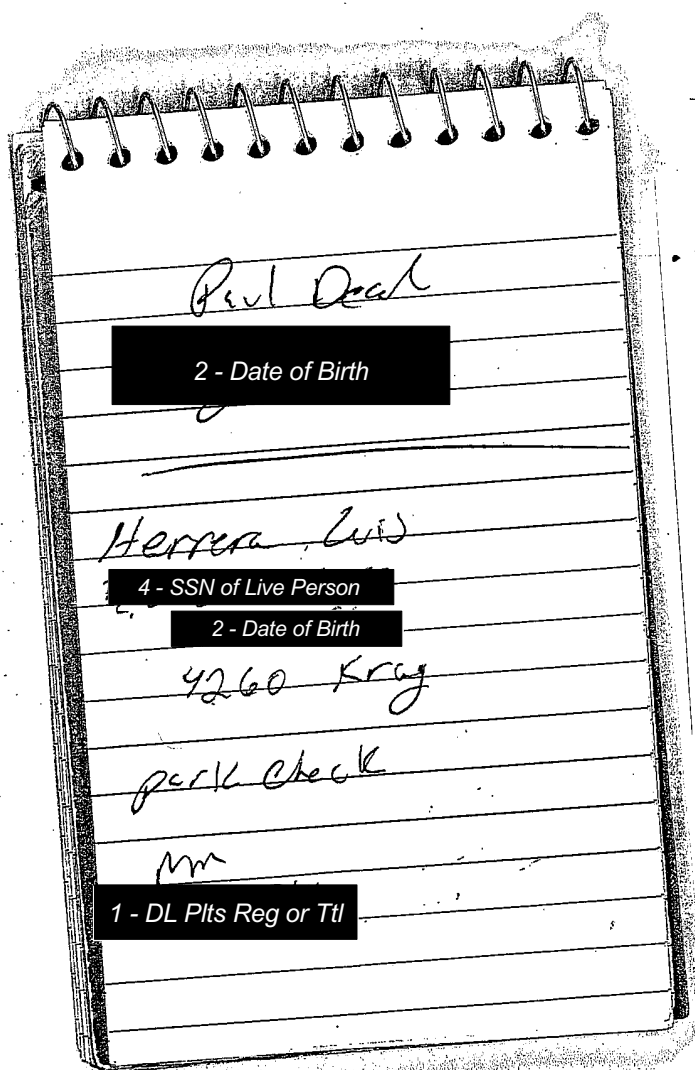 Paul
2 - Date of Birth
Herrera, Luis
4 - SSN of Live Person
2 - Date of Birth
4260 Krag
park check
1 - DL Plts Reg or Ttl